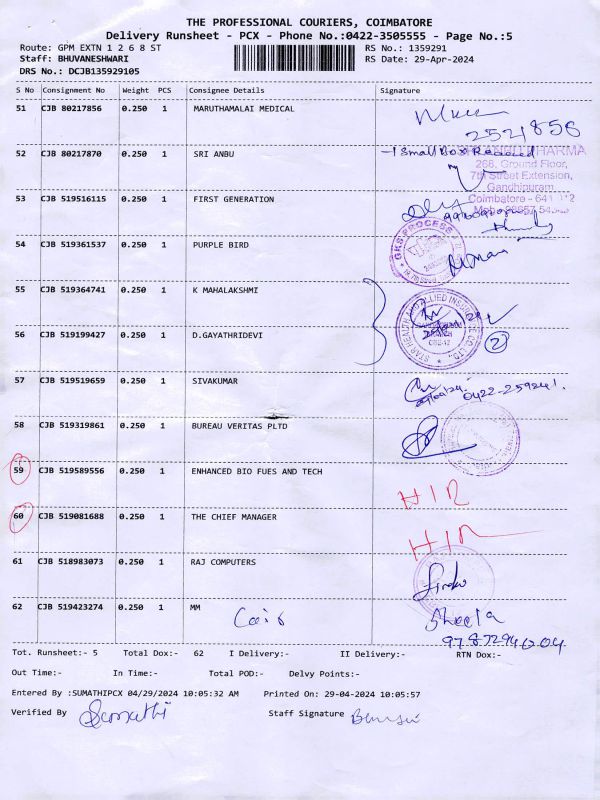 THE PROFESSIONAL COURIERS, COIMBATORE
Delivery Runsheet - PCX - Phone No.:0422-3505555 - Page No.:5
Route: GPM EXTN 1 2 6 8 ST RS No.: 1359291
Staff: BHUVANESHWARI RS Date: 29-Apr-2024
DRS No.: DCJB135929105
S No Consignment No Weight PCS Consignee Details Signature
51 CJB 80217856 0.250 1 MARUTHAMALAI MEDICAL
2521856
52 CJB 80217870 0.250 1 SRI ANBU
-1 Small Box Received
PHARMA
268, Ground Floor,
7th Street Extension,
Gandhipuram
Coimbatore - 641 012
53 CJB 519516115 0.250 1 FIRST GENERATION
GKS PROCESS
54 CJB 519361537 0.250 1 PURPLE BIRD
55 CJB 519364741 0.250 1 K MAHALAKSHMI
STAR HEALTH AND ALLIED INSURANCE CO. LTD.
56 CJB 519199427 0.250 1 D.GAYATHRIDEVI
2
57 CJB 519519659 0.250 1 SIVAKUMAR
0422-259241.
58 CJB 519319861 0.250 1 BUREAU VERITAS PLTD
59 CJB 519589556 0.250 1 ENHANCED BIO FUES AND TECH
HIR
60 CJB 519081688 0.250 1 THE CHIEF MANAGER
HIR
61 CJB 518983073 0.250 1 RAJ COMPUTERS
62 CJB 519423274 0.250 1 MM
Sheela
Tot. Runsheet:- 5 Total Dox:- 62 I Delivery:- II Delivery:- RTN Dox:-
Out Time:- In Time:- Total POD:- Delvy Points:-
Entered By :SUMATHIPCX 04/29/2024 10:05:32 AM Printed On: 29-04-2024 10:05:57
Verified By Sumathi Staff Signature